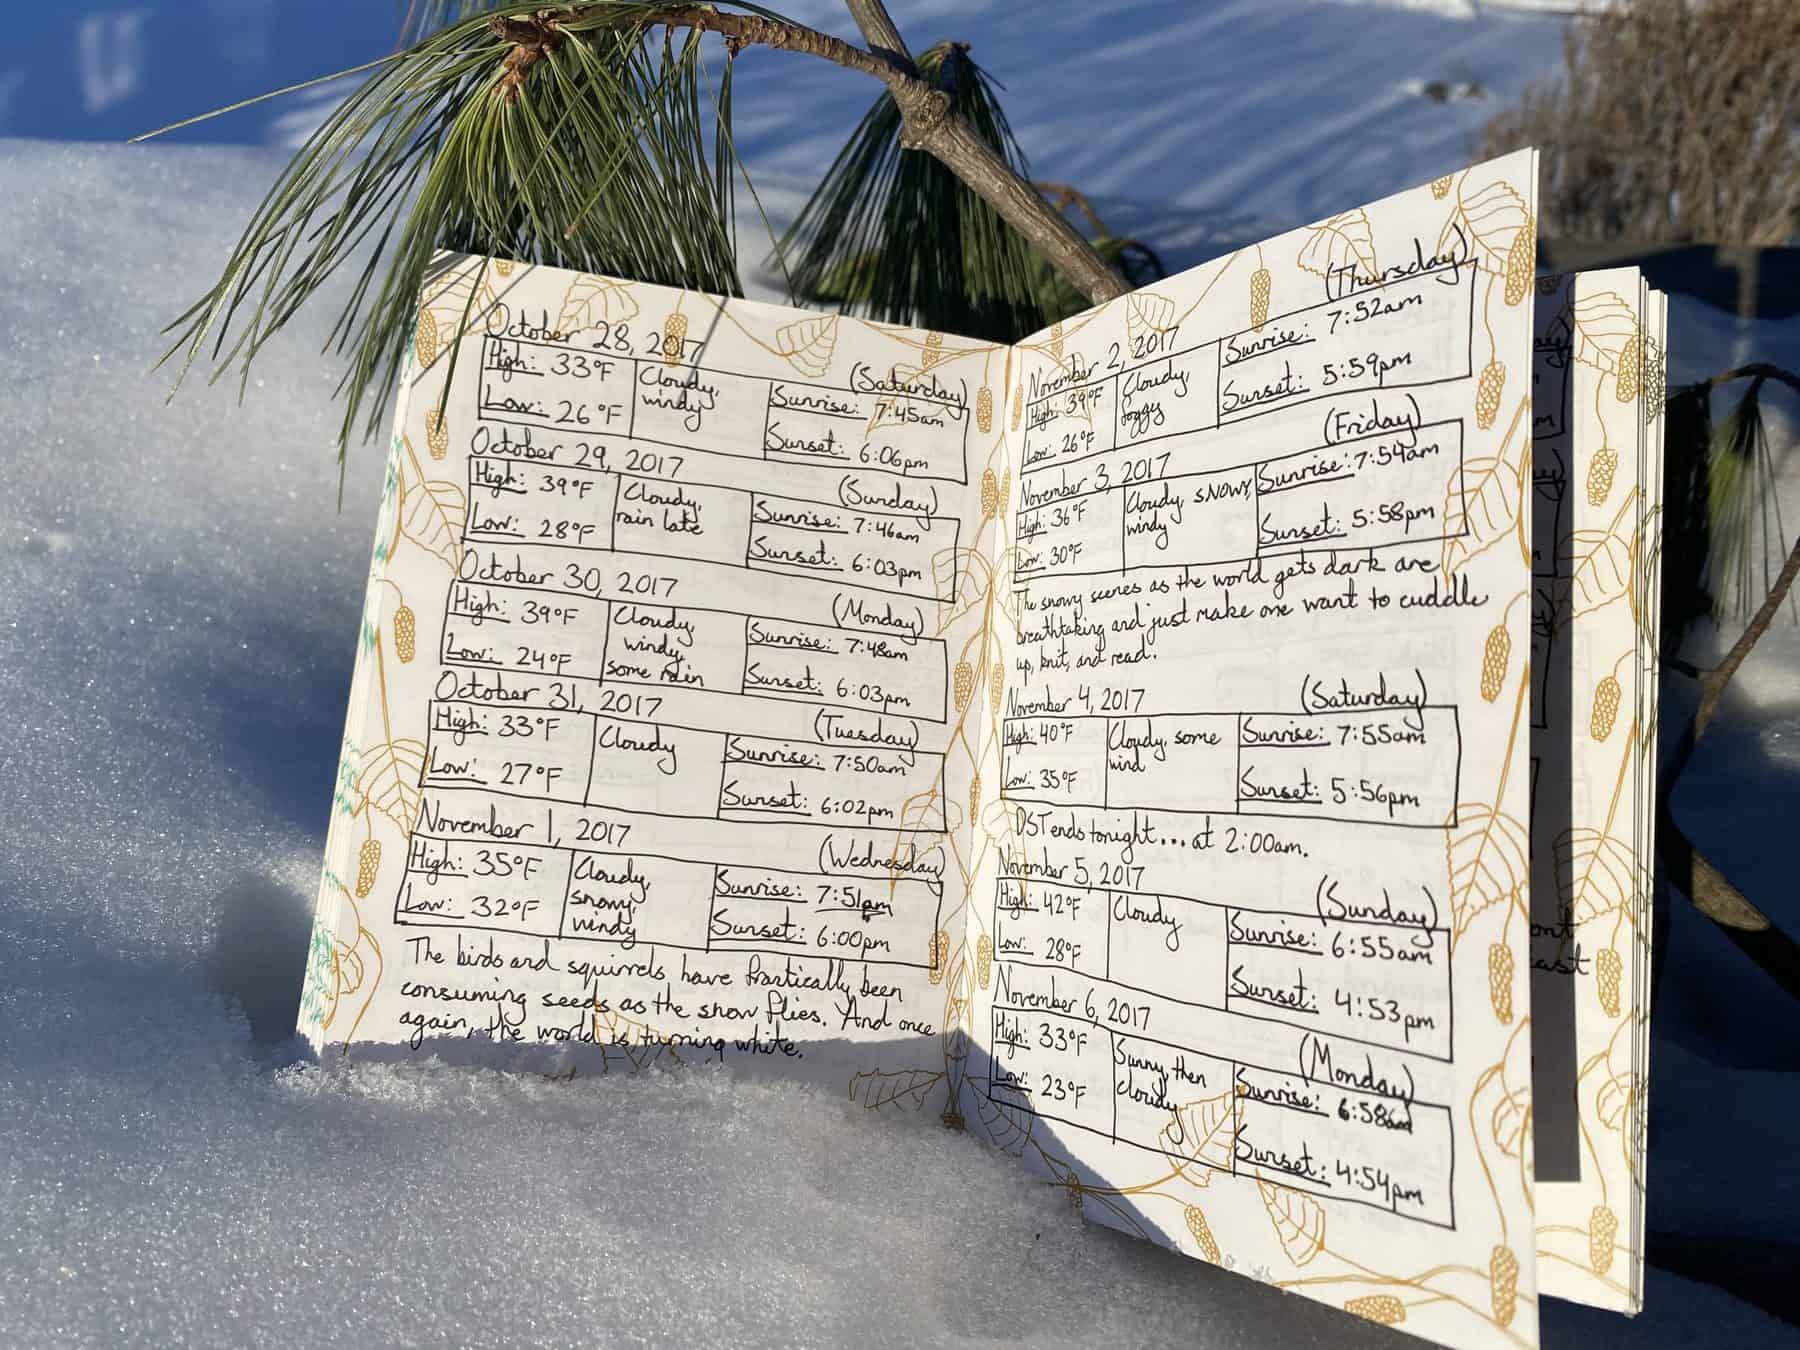 October 28, 2017
(Saturday)
High: 33°F
Low: 26°F
Cloudy,
windy
Sunrise: 7:45am
Sunset: 6:06pm
October 29, 2017
(Sunday)
High: 39°F
Low: 28°F
Cloudy,
rain late
Sunrise: 7:46am
Sunset: 6:03pm
October 30, 2017
(Monday)
High: 39°F
Low: 24°F
Cloudy,
windy,
some rain
Sunrise: 7:48am
Sunset: 6:03pm
October 31, 2017
(Tuesday)
High: 33°F
Low: 27°F
Cloudy
Sunrise: 7:50am
Sunset: 6:02pm
November 1, 2017
(Wednesday)
High: 35°F
Low: 32°F
Cloudy,
snowy,
windy
Sunrise: 7:51am
Sunset: 6:00pm
The birds and squirrels have frantically been
consuming seeds as the snow flies. And once
again, the world is turning white.
November 2, 2017
(Thursday)
High: 39°F
Low: 26°F
Cloudy,
foggy
Sunrise: 7:52am
Sunset: 5:59pm
November 3, 2017
(Friday)
High: 36°F
Low: 30°F
Cloudy, snowy,
windy
Sunrise: 7:54am
Sunset: 5:58pm
The snowy scenes as the world gets dark are
breathtaking and just make one want to cuddle
up, knit, and read.
November 4, 2017
(Saturday)
High: 40°F
Low: 35°F
Cloudy, some
wind
Sunrise: 7:55am
Sunset: 5:56pm
DST ends tonight... at 2:00am.
November 5, 2017
(Sunday)
High: 42°F
Low: 28°F
Cloudy
Sunrise: 6:55am
Sunset: 4:53pm
November 6, 2017
(Monday)
High: 33°F
Low: 23°F
Sunny, then
cloudy
Sunrise: 6:58am
Sunset: 4:54pm